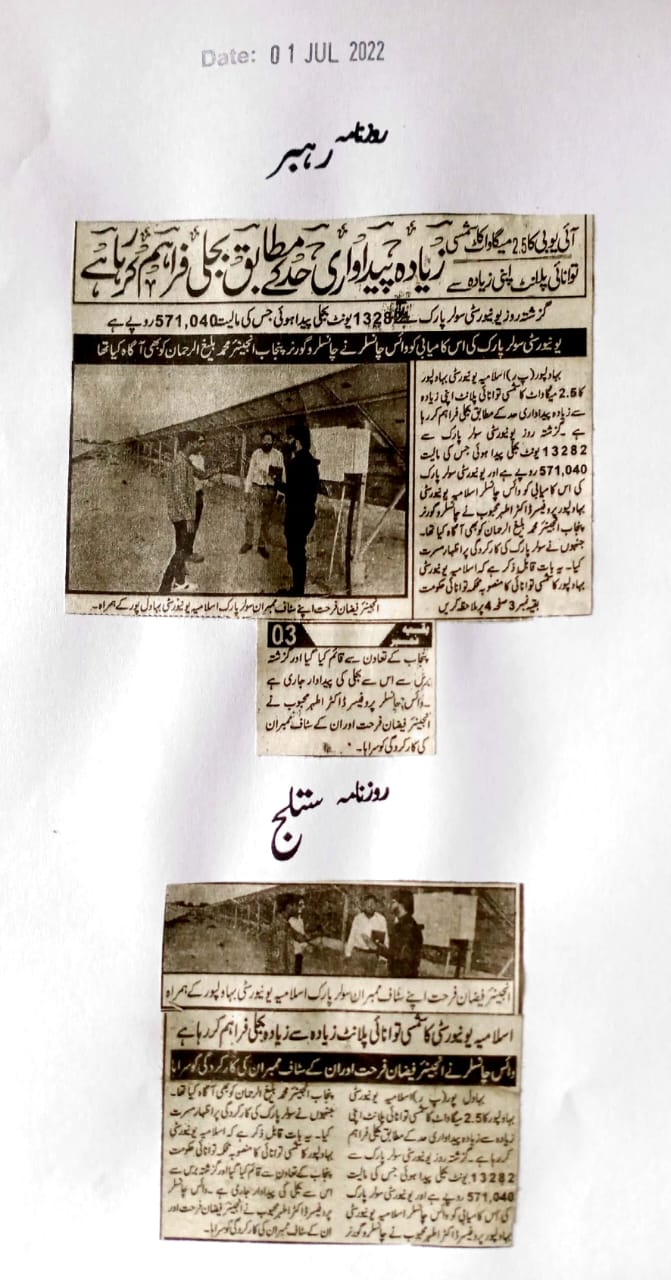 Date: 01 JUL 2022
روزنامہ رہبر
آئی یو بی کا 2.5 میگاواٹ کا شمسی
توانائی پلانٹ اپنی زیادہ سے
زیادہ پیداواری حد کے مطابق بجلی فراہم کر رہا ہے
گزشتہ روز یونیورسٹی سولر پارک سے 13282 یونٹ بجلی پیدا ہوئی جس کی مالیت 571,040 روپے ہے
یونیورسٹی سولر پارک کی اس کامیابی کو وائس چانسلر نے چانسلر و گورنر پنجاب انجینئر محمد بلیغ الرحمان کو بھی آگاہ کیا تھا
بہاولپور (پ ر) اسلامیہ یونیورسٹی بہاولپور
کا 2.5 میگاواٹ کا شمسی توانائی پلانٹ اپنی زیادہ
سے زیادہ پیداواری حد کے مطابق بجلی فراہم کر رہا
ہے۔ گزشتہ روز یونیورسٹی سولر پارک سے
13282 یونٹ بجلی پیدا ہوئی جس کی مالیت
571,040 روپے ہے اور یونیورسٹی سولر پارک
کی اس کامیابی کو وائس چانسلر اسلامیہ یونیورسٹی
بہاولپور پروفیسر ڈاکٹر اطہر محبوب نے چانسلر و گورنر
پنجاب انجینئر محمد بلیغ الرحمان کو بھی آگاہ کیا تھا۔
جنہوں نے سولر پارک کی کارکردگی پر اظہار مسرت
کیا۔ یہ بات قابل ذکر ہے کہ اسلامیہ یونیورسٹی
بہاولپور کا شمسی توانائی کا منصوبہ محکمہ توانائی حکومت
بقیہ نمبر 3 صفحہ 4 پر ملاحظہ کریں
انجینئر فیضان فرحت اپنے سٹاف ممبران سولر پارک اسلامیہ یونیورسٹی بہاول پور کے ہمراہ۔
بقیہ نمبر 03
پنجاب کے تعاون سے قائم کیا گیا اور گزشتہ
برس سے اس سے بجلی کی پیداوار جاری ہے
۔ وائس چانسلر پروفیسر ڈاکٹر اطہر محبوب نے
انجینئر فیضان فرحت اور ان کے سٹاف ممبران
کی کارکردگی کو سراہا۔
روزنامہ ستلج
انجینئر فیضان فرحت اپنے سٹاف ممبران سولر پارک اسلامیہ یونیورسٹی بہاولپور کے ہمراہ
اسلامیہ یونیورسٹی کا شمسی توانائی پلانٹ زیادہ سے زیادہ بجلی فراہم کر رہا ہے
وائس چانسلر نے انجینئر فیضان فرحت اور ان کے سٹاف ممبران کی کارکردگی کو سراہا
بہاول پور (پ ر) اسلامیہ یونیورسٹی
بہاولپور کا 2.5 میگاواٹ کا شمسی توانائی پلانٹ اپنی
زیادہ سے زیادہ پیداواری حد کے مطابق بجلی فراہم
کر رہا ہے۔ گزشتہ روز یونیورسٹی سولر پارک سے
13282 یونٹ بجلی پیدا ہوئی جس کی مالیت
571,040 روپے ہے اور یونیورسٹی سولر پارک
کی اس کامیابی کو وائس چانسلر اسلامیہ یونیورسٹی
بہاولپور پروفیسر ڈاکٹر اطہر محبوب نے چانسلر و گورنر
پنجاب انجینئر محمد بلیغ الرحمان کو بھی آگاہ کیا تھا۔
جنہوں نے سولر پارک کی کارکردگی پر اظہار مسرت
کیا۔ یہ بات قابل ذکر ہے کہ اسلامیہ یونیورسٹی
بہاولپور کا شمسی توانائی کا منصوبہ محکمہ توانائی حکومت
پنجاب کے تعاون سے قائم کیا گیا اور گزشتہ برس سے
اس سے بجلی کی پیداوار جاری ہے۔ وائس چانسلر
پروفیسر ڈاکٹر اطہر محبوب نے انجینئر فیضان فرحت اور
ان کے سٹاف ممبران کی کارکردگی کو سراہا۔